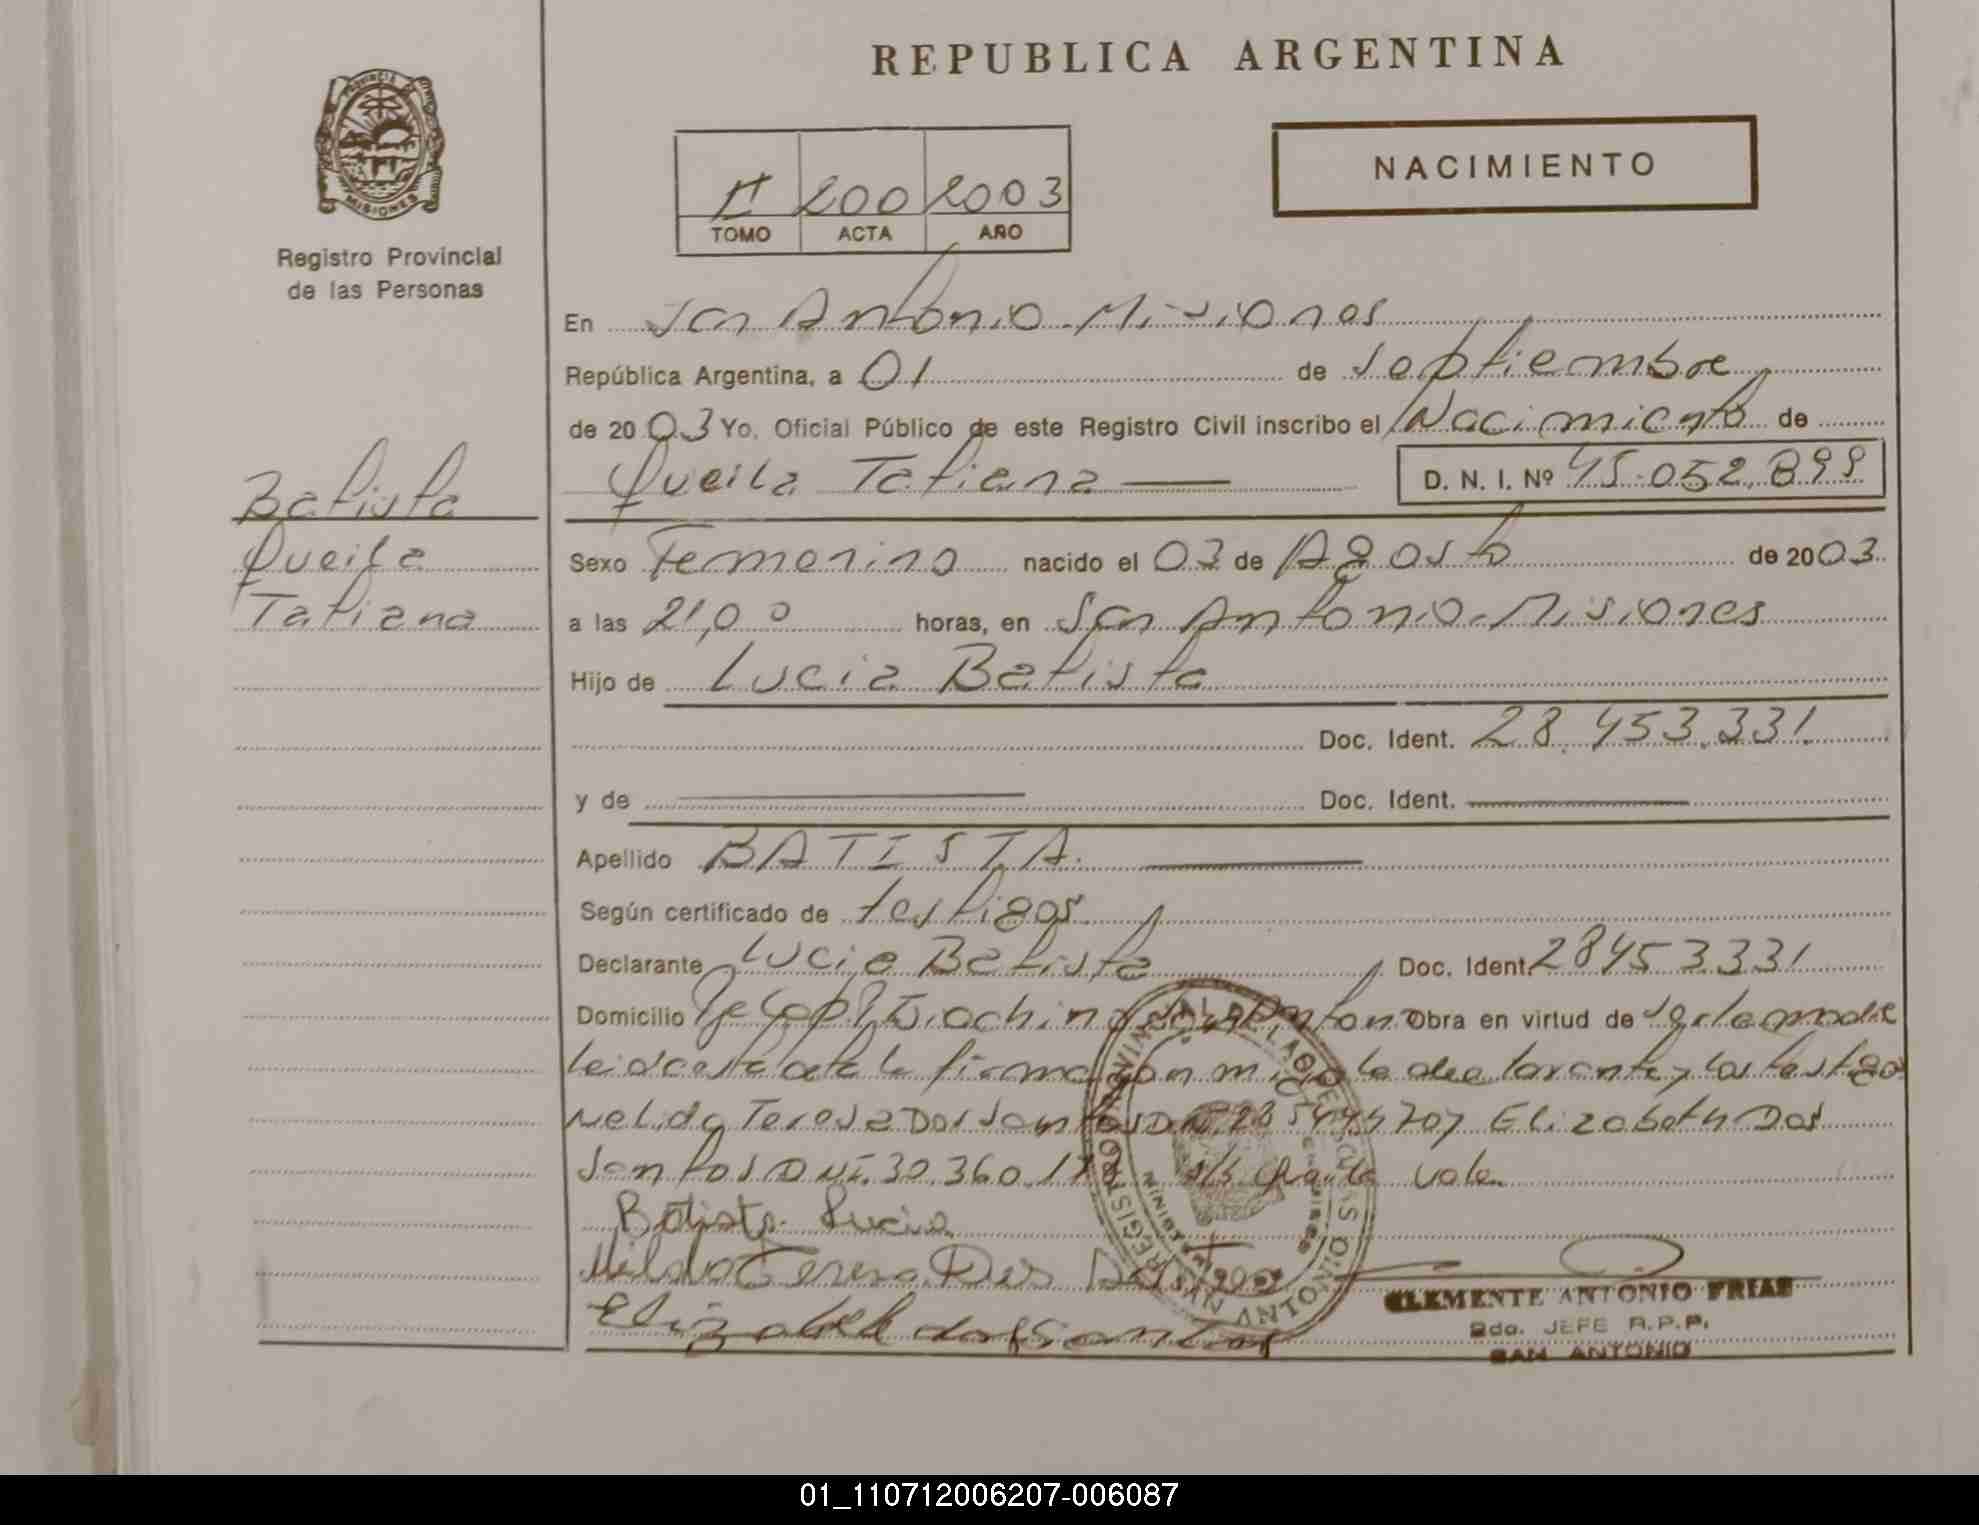 REPUBLICA ARGENTINA
PROVINCIA DE
MISIONES
Registro Provincial
de las Personas
II 200 2003
TOMO ACTA AÑO
NACIMIENTO
En San Antonio Misiones
República Argentina, a 01 de Septiembre
de 2003 Yo, Oficial Público de este Registro Civil inscribo el Nacimiento de
Queila Tatiana D. N. I. Nº 45.052.899
Batista
Queila
Tatiana
Sexo Femenino nacido el 03 de Agosto de 2003
a las 21,00 horas, en San Antonio Misiones
Hijo de Lucia Batista
Doc. Ident. 28.453.331
y de Doc. Ident.
Apellido BATISTA
Según certificado de testigos
Declarante Lucia Batista Doc. Ident. 28453331
Domicilio San Anton Obra en virtud de
leida esta acta la firman la declarante y los testigos
Nelida Teresa Dos Santos Elizabeth Dos
Santos DNI. 30.360. vale
Batista Lucia
Nelida Teresa Dos Santos
Elizabeth dos Santos
CLEMENTE ANTONIO FRIAS
2do. JEFE R.P.P.
SAN ANTONIO
01_110712006207-006087